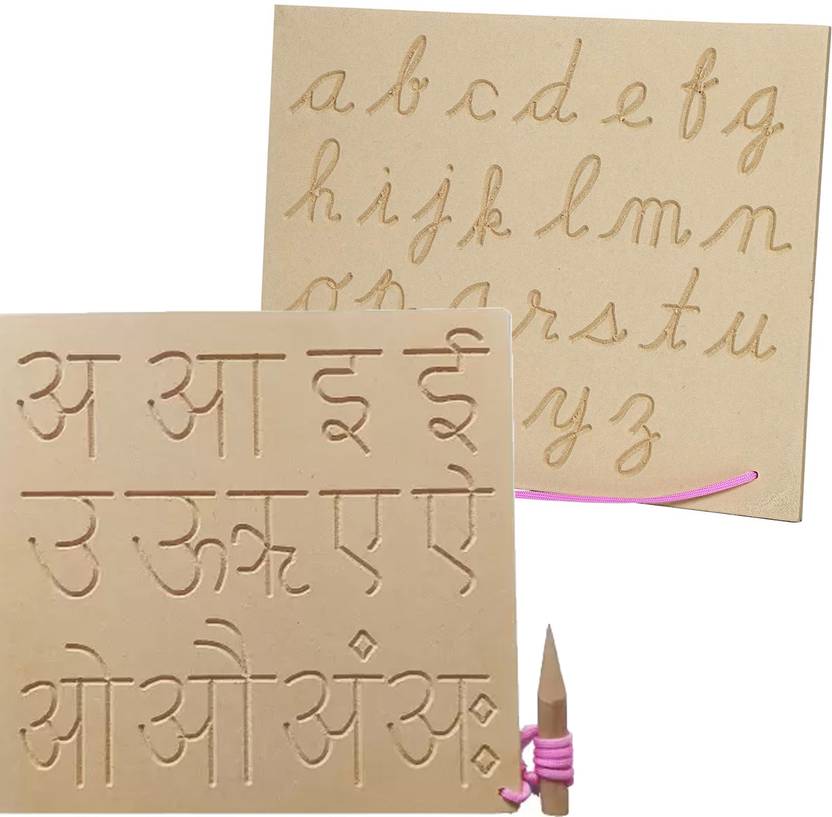 a b c d e f g
h i j k l m n
o p q r s t u
y z
अ आ इ ई
उ ऊ ऋ ए ऐ
ओ औ अं अः